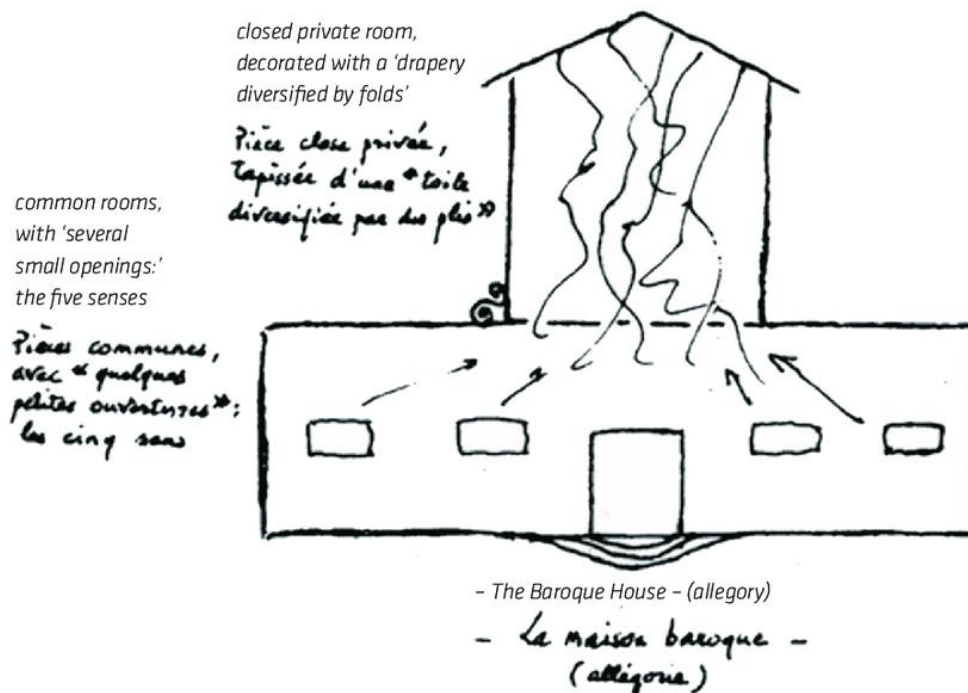 closed private room,
decorated with a ‘drapery
diversified by folds’
Pièce close privée,
tapissée d'une “toile
diversifiée par des plis”
common rooms,
with ‘several
small openings:’
the five senses
Pièces communes,
avec “quelques
petites ouvertures”:
les cinq sens
– The Baroque House – (allegory)
– La maison baroque –
(allégorie)